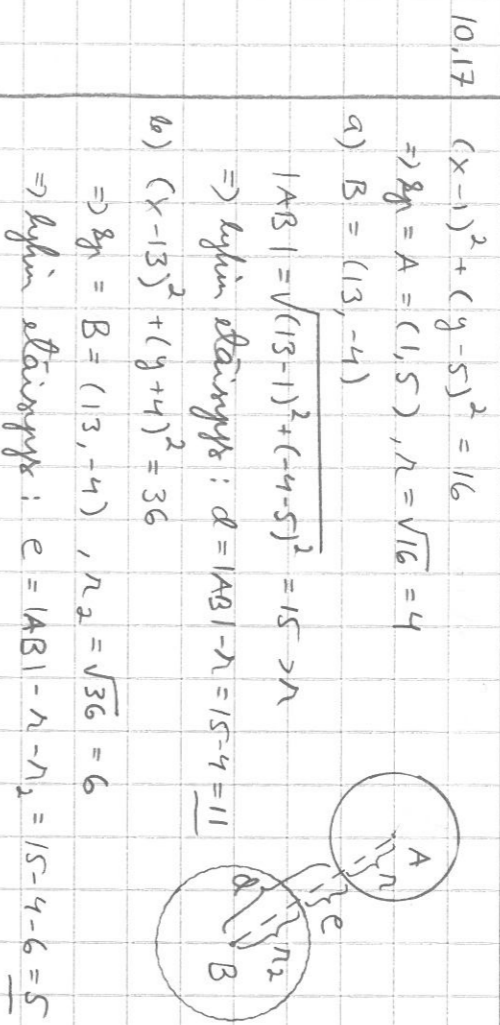 10.17 (x-1)² + (y-5)² = 16
⇒ kp = A = (1, 5), r = √16 = 4
a) B = (13, -4)
|AB| = √((13-1)² + (-4-5)²) = 15 > r
⇒ lyhin etäisyys: d = |AB| - r = 15-4 = 11
b) (x-13)² + (y+4)² = 36
⇒ kp = B = (13, -4), r₂ = √36 = 6
⇒ lyhin etäisyys: e = |AB| - r - r₂ = 15-4-6 = 5
A
r
e
d
r₂
B